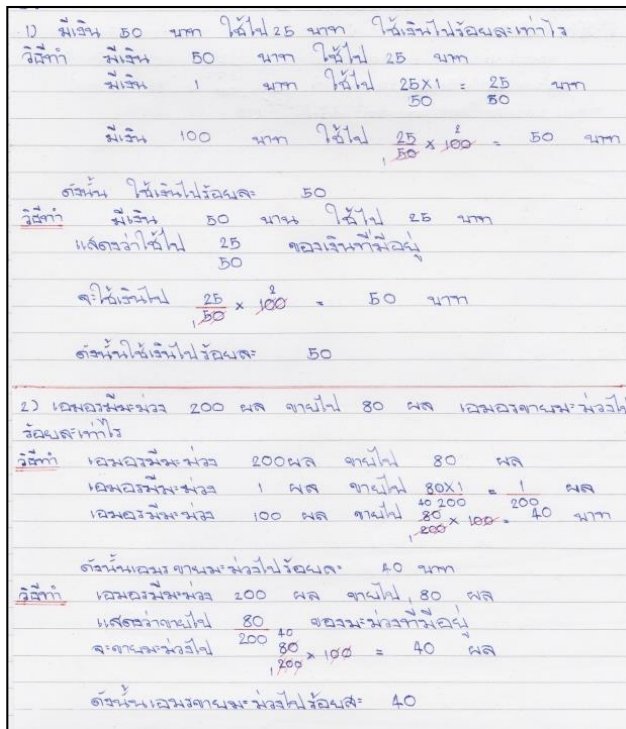 1) มีเงิน 50 บาท ใช้ไป 25 บาท ใช้เงินไปร้อยละเท่าไร
วิธีทำ มีเงิน 50 บาท ใช้ไป 25 บาท
มีเงิน 1 บาท ใช้ไป 25×1/50 = 25/50 บาท
มีเงิน 100 บาท ใช้ไป 25/50 × 100 = 50 บาท
1 2
ดังนั้น ใช้เงินไปร้อยละ 50
วิธีทำ มีเงิน 50 บาน ใช้ไป 25 บาท
แสดงว่าใช้ไป 25/50 ของเงินที่มีอยู่
จะใช้เงินไป 25/50 × 100 = 50 บาท
1 2
ดังนั้นใช้เงินไปร้อยละ 50
2) เอมอรมีมะม่วง 200 ผล ขายไป 80 ผล เอมอรขายมะม่วงไป
ร้อยละเท่าไร
วิธีทำ เอมอรมีมะม่วง 200 ผล ขายไป 80 ผล
เอมอรมีมะม่วง 1 ผล ขายไป 80×1/200 = 1/200 ผล
เอมอรมีมะม่วง 100 ผล ขายไป 80/200 × 100 = 40 บาท
40 1
ดังนั้นเอมรขายมะม่วงไปร้อยละ 40 บาท
วิธีทำ เอมอรมีมะม่วง 200 ผล ขายไป 80 ผล
แสดงว่าขายไป 80/200 ของมะม่วงที่มีอยู่
จะขายมะม่วงไป 80/200 × 100 = 40 ผล
40 1
ดังนั้นเอมรขายมะม่วงไปร้อยละ 40